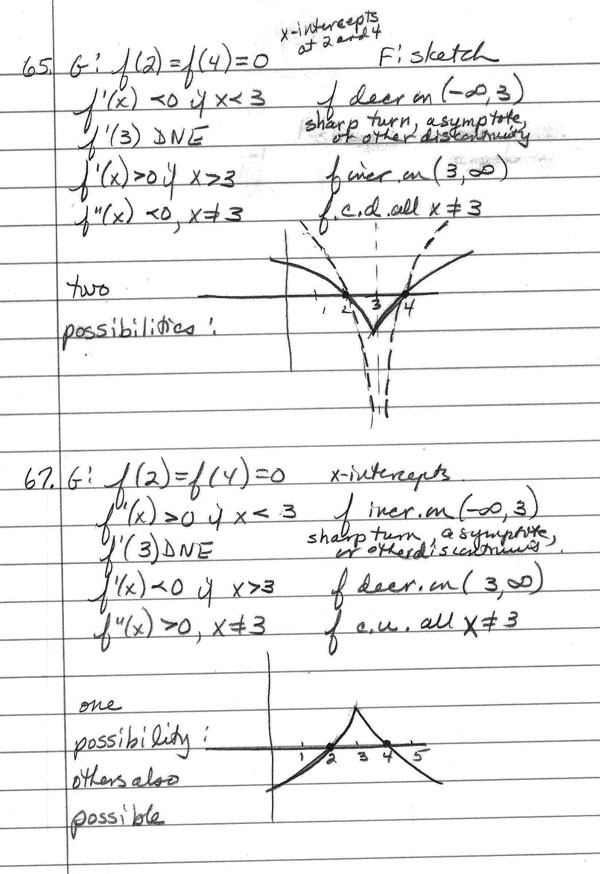 x-intercepts
at 2 and 4
65. G: f(2)=f(4)=0 F: sketch
f'(x) <0 if x<3 f decr. on (-∞,3)
f'(3) DNE sharp turn, asymptote,
or other discontinuity
f'(x)>0 if x>3 f incr. on (3,∞)
f"(x) <0, x≠3 f.c.d. all x≠3
two
possibilities:
1 2 3 4
67. G: f(2)=f(4)=0 x-intercepts
f'(x)>0 if x<3 f incr. on (-∞,3)
f'(3) DNE sharp turn, asymptote,
or other discontinuis.
f'(x)<0 if x>3 f decr. on (3,∞)
f"(x)>0, x≠3 f c.u. all x≠3
one
possibility:
1 2 3 4 5
others also
possible